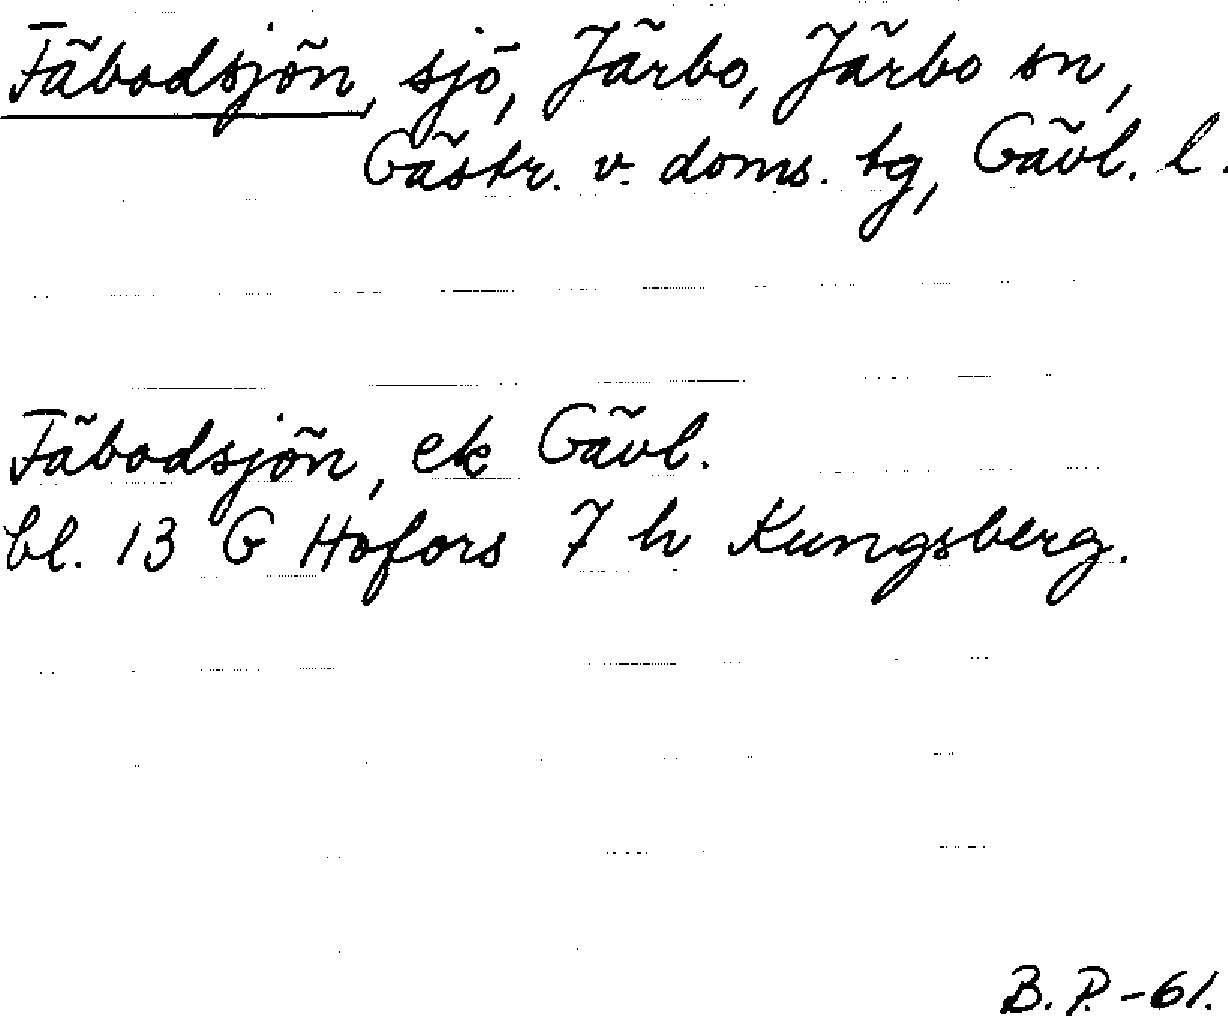 Fäbodsjön, sjö, Järbo, Järbo sn,
Gästr. v. doms. tg, Gävl. l.
Fäbodsjön, ek Gävl.
bl. 13 G Hofors 7 h Kungsberg.
B.P.-61.